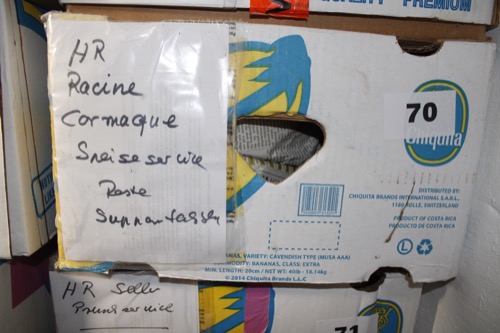 PREMIUM
HR
Racine
Cormaque
Sneiseservice
Reste
70
Chiquita
DISTRIBUTED BY:
CHIQUITA BRANDS INTERNATIONAL S.A.R.L.
1180 ROLLE, SWITZERLAND
PRODUCT OF COSTA RICA
PRODUCTO DE COSTA RICA
VARIETY: CAVENDISH TYPE (MUSA AAA)
BANANAS, CLASS: EXTRA
MIN. LENGTH: 20cm / NET WT: 40lb - 18.14kg
© 2014 Chiquita Brands L.L.C
HR
71